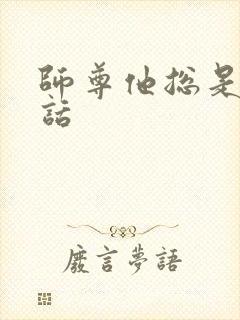 師尊他總是
話
廢言夢語